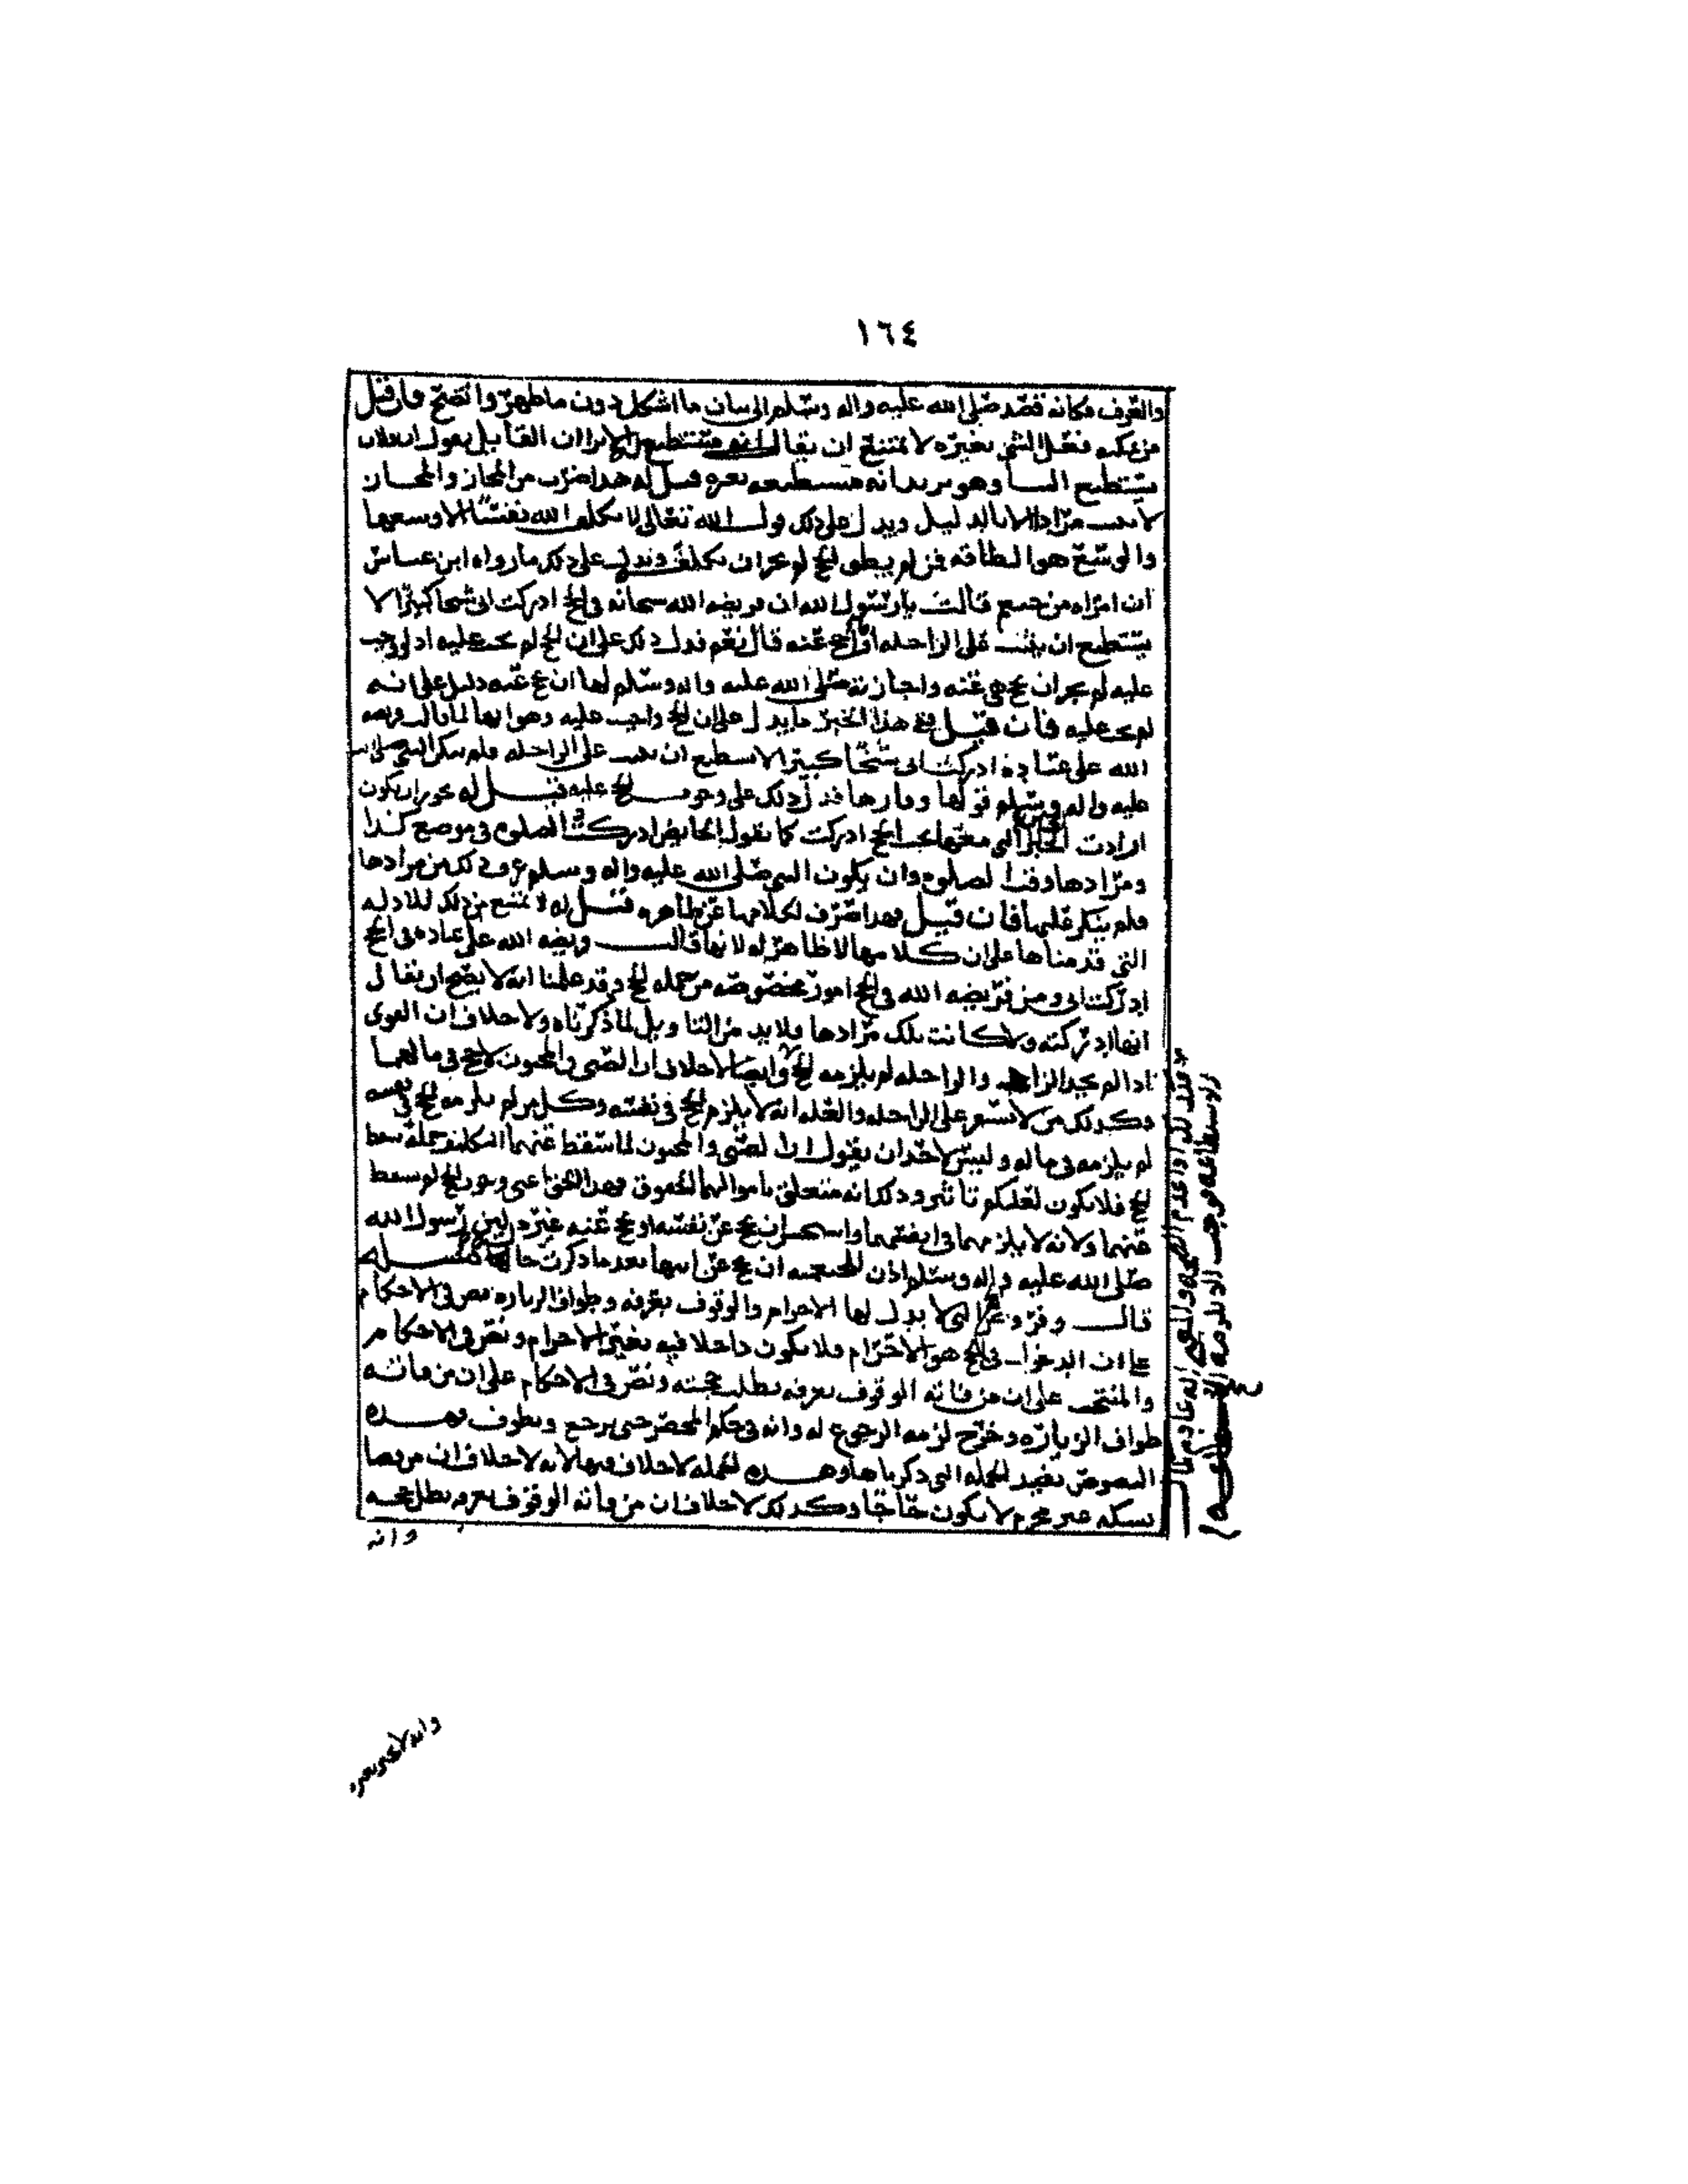 ١٦٤
والعرف فكانه قصد صلى الله عليه واله وسلم الى بيان ما اشكل دون ما ظهر واتضح فان قيل
من يمكنه فعل الشي بغيره لا يمتنع ان يقال انه مستطيع الا ترا ان القايل يقول ان فلان
يستطيع البنا وهو يريد انه يستطيعه بغيره قيل له هذا ضرب من المجاز والمجاز
لا يصير مرادا الا بالدليل ويدل على ذلك قول الله تعالى لا يكلف الله نفسا الا وسعها
والوسع هو الطاقه فمن لم يطق الحج لم يجز ان يكلف ويدل على ذلك ما رواه ابن عباس
ان امراه من خثعم قالت يا رسول الله ان فريضه الله سبحانه في الحج ادركت ابي شيخا كبيرا لا
يستطيع ان يثبت على الراحله افاحج عنه قال نعم فدل ذلك على ان الحج لم يجب عليه اذ لو وجب
عليه لم يجز ان تحج هي عنه واجازته صلى الله عليه واله وسلم لها ان تحج عنه دليل على انه
لم يجب عليه فان قيل ففي هذا الخبر ما يدل على ان الحج واجب عليه وهو انها لما قالت فريضه
الله على عباده ادركت ابي شيخا كبيرا لا يستطيع ان يثبت على الراحله فلم ينكر النبي صلى الله
عليه واله وسلم قولها وقارها فدل ذلك على وجوب الحج عليه قيل له يجوز ان يكون
ارادت الحال التي معها يجب الحج ادركت كما يقول الحايض ادركت الصلوه في موضع كذا
ومرادها وقت الصلوه وان يكون النبي صلى الله عليه واله وسلم عرف ذلك من مرادها
فلم ينكر عليها فان قيل فهذا صرف لكلامها عن ظاهره قيل له لا يمتنع من ذلك للادله
التي قدمناها على ان كلامها لا ظاهر له لانها قالت فريضه الله على عباده في الحج
ادركت ابي ومن فريضه الله في الحج امور مخصوصه من جمله الحج وقد علمنا انه لا يصح ان يقال
انها ادركته ولا كانت تلك مرادها فلا بد من التاويل لما ذكرناه ولا خلاف ان القوي
اذا لم يجد الزاد والراحله لم يلزمه الحج وايضا لا خلاف ان الصبي والمجنون لا حج في مالهما
وكذلك من لا يستقر على الراحله والعله انه لا يلزم الحج في نفسه وكل من لم يلزمه الحج في نفسه
لم يلزمه في ماله وليس لاحد ان يقول ان الصبي والمجنون لما سقط عنهما التكليف جمله سقط
الحج فلا يكون لعلتكم تاثير وذلك انه متعلق باموالهما الحقوق
عنهما ولانه لا يلزمهما في انفسهما واستحسن ان يحج عن نفسه او يحج عنه غيره لان رسول الله
صلى الله عليه واله وسلم اذن للخثعميه ان تحج عن ابيها بعد ما ذكرت حاله مسئله
قال وفروض الحج التي لا بدل لها الاحرام والوقوف بعرفه وطواف الزياره نص في الاحكام
على ان الدخول في الحج هو الاحرام فلا يكون داخلا فيه بغير الاحرام ونص في الاحكام
والمنتخب على ان من فاته الوقوف بعرفه بطلت حجته ونص في الاحكام على ان من فاته
طواف الزياره وخرج لزمه الرجوع له وانه في حكم المحصر حتى يرجع ويطوف وهذه
النصوص تفيد الجمله التي ذكرناها وهذه الجمله لا خلاف فيها لانه لا خلاف ان من قضا
نسكه غير محرم لا يكون حاجا وكذلك لا خلاف ان من فاته الوقوف بعرفه بطل حجه
وانه